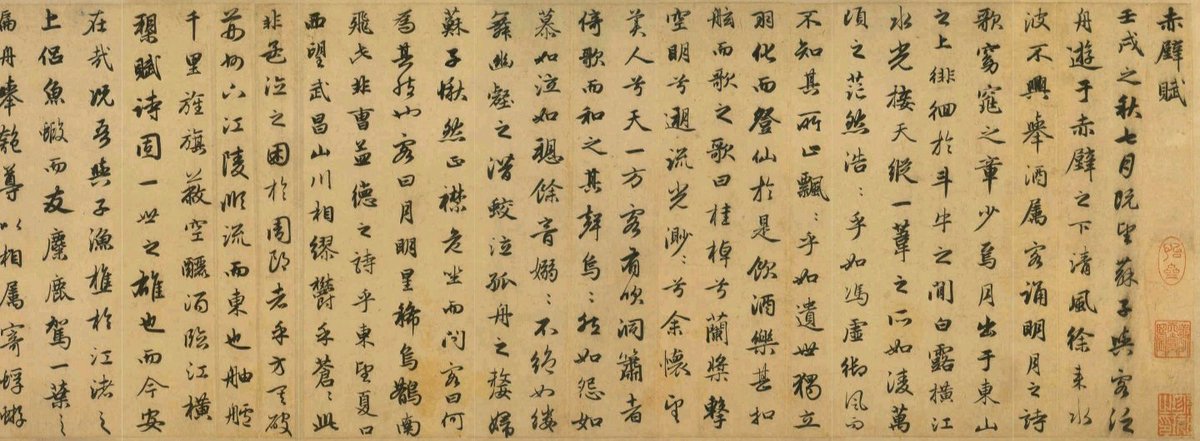 赤壁賦
壬戌之秋七月既望蘇子與客泛
舟遊于赤壁之下清風徐来水
波不興舉酒属客誦明月之詩
歌窈窕之章少焉月出于東山
之上徘徊於斗牛之間白露橫江
水光接天縱一葦之所如淩萬
頃之茫然浩〻乎如馮虚御風而
不知其所止飄〻乎如遺世獨立
羽化而登仙於是飲酒樂甚扣
舷而歌之歌曰桂棹兮蘭槳擊
空明兮遡流光渺〻兮余懷望
美人兮天一方客有吹洞簫者
倚歌而和之其聲烏〻然如怨如
慕如泣如愬餘音嫋〻不絶如縷
舞幽壑之潛蛟泣孤舟之嫠婦
蘇子愀然正襟危坐而問客曰何
為其然也客曰月明星稀烏鵲南
飛此非曹孟德之詩乎東望夏口
西望武昌山川相繆鬱乎蒼〻此
非孟德之困於周郎者乎方其破
荊州下江陵順流而東也舳艫
千里旌旗蔽空釃酒臨江橫
槊賦詩固一世之雄也而今安
在哉況吾與子漁樵於江渚之
上侣魚蝦而友麋鹿駕一葉之
扁舟舉匏尊以相属寄蜉蝣